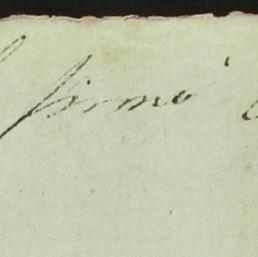 firmó